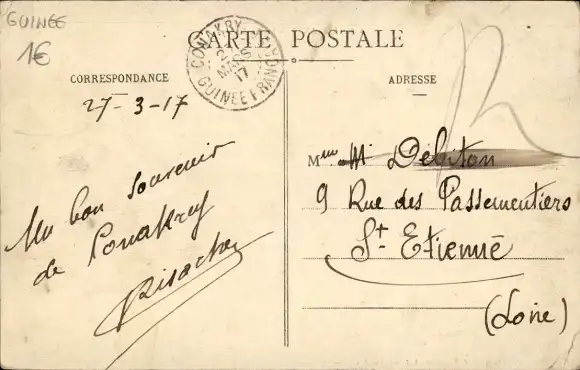 GUINÉE
1€
CARTE POSTALE
CONAKRY
2
MARS
17
GUINÉE FRANÇSE
CORRESPONDANCE
27-3-17
Un bon souvenir
de Conakry
ADRESSE
Mme M Debiton
9 Rue des Passementiers
St Etienne
(Loire)